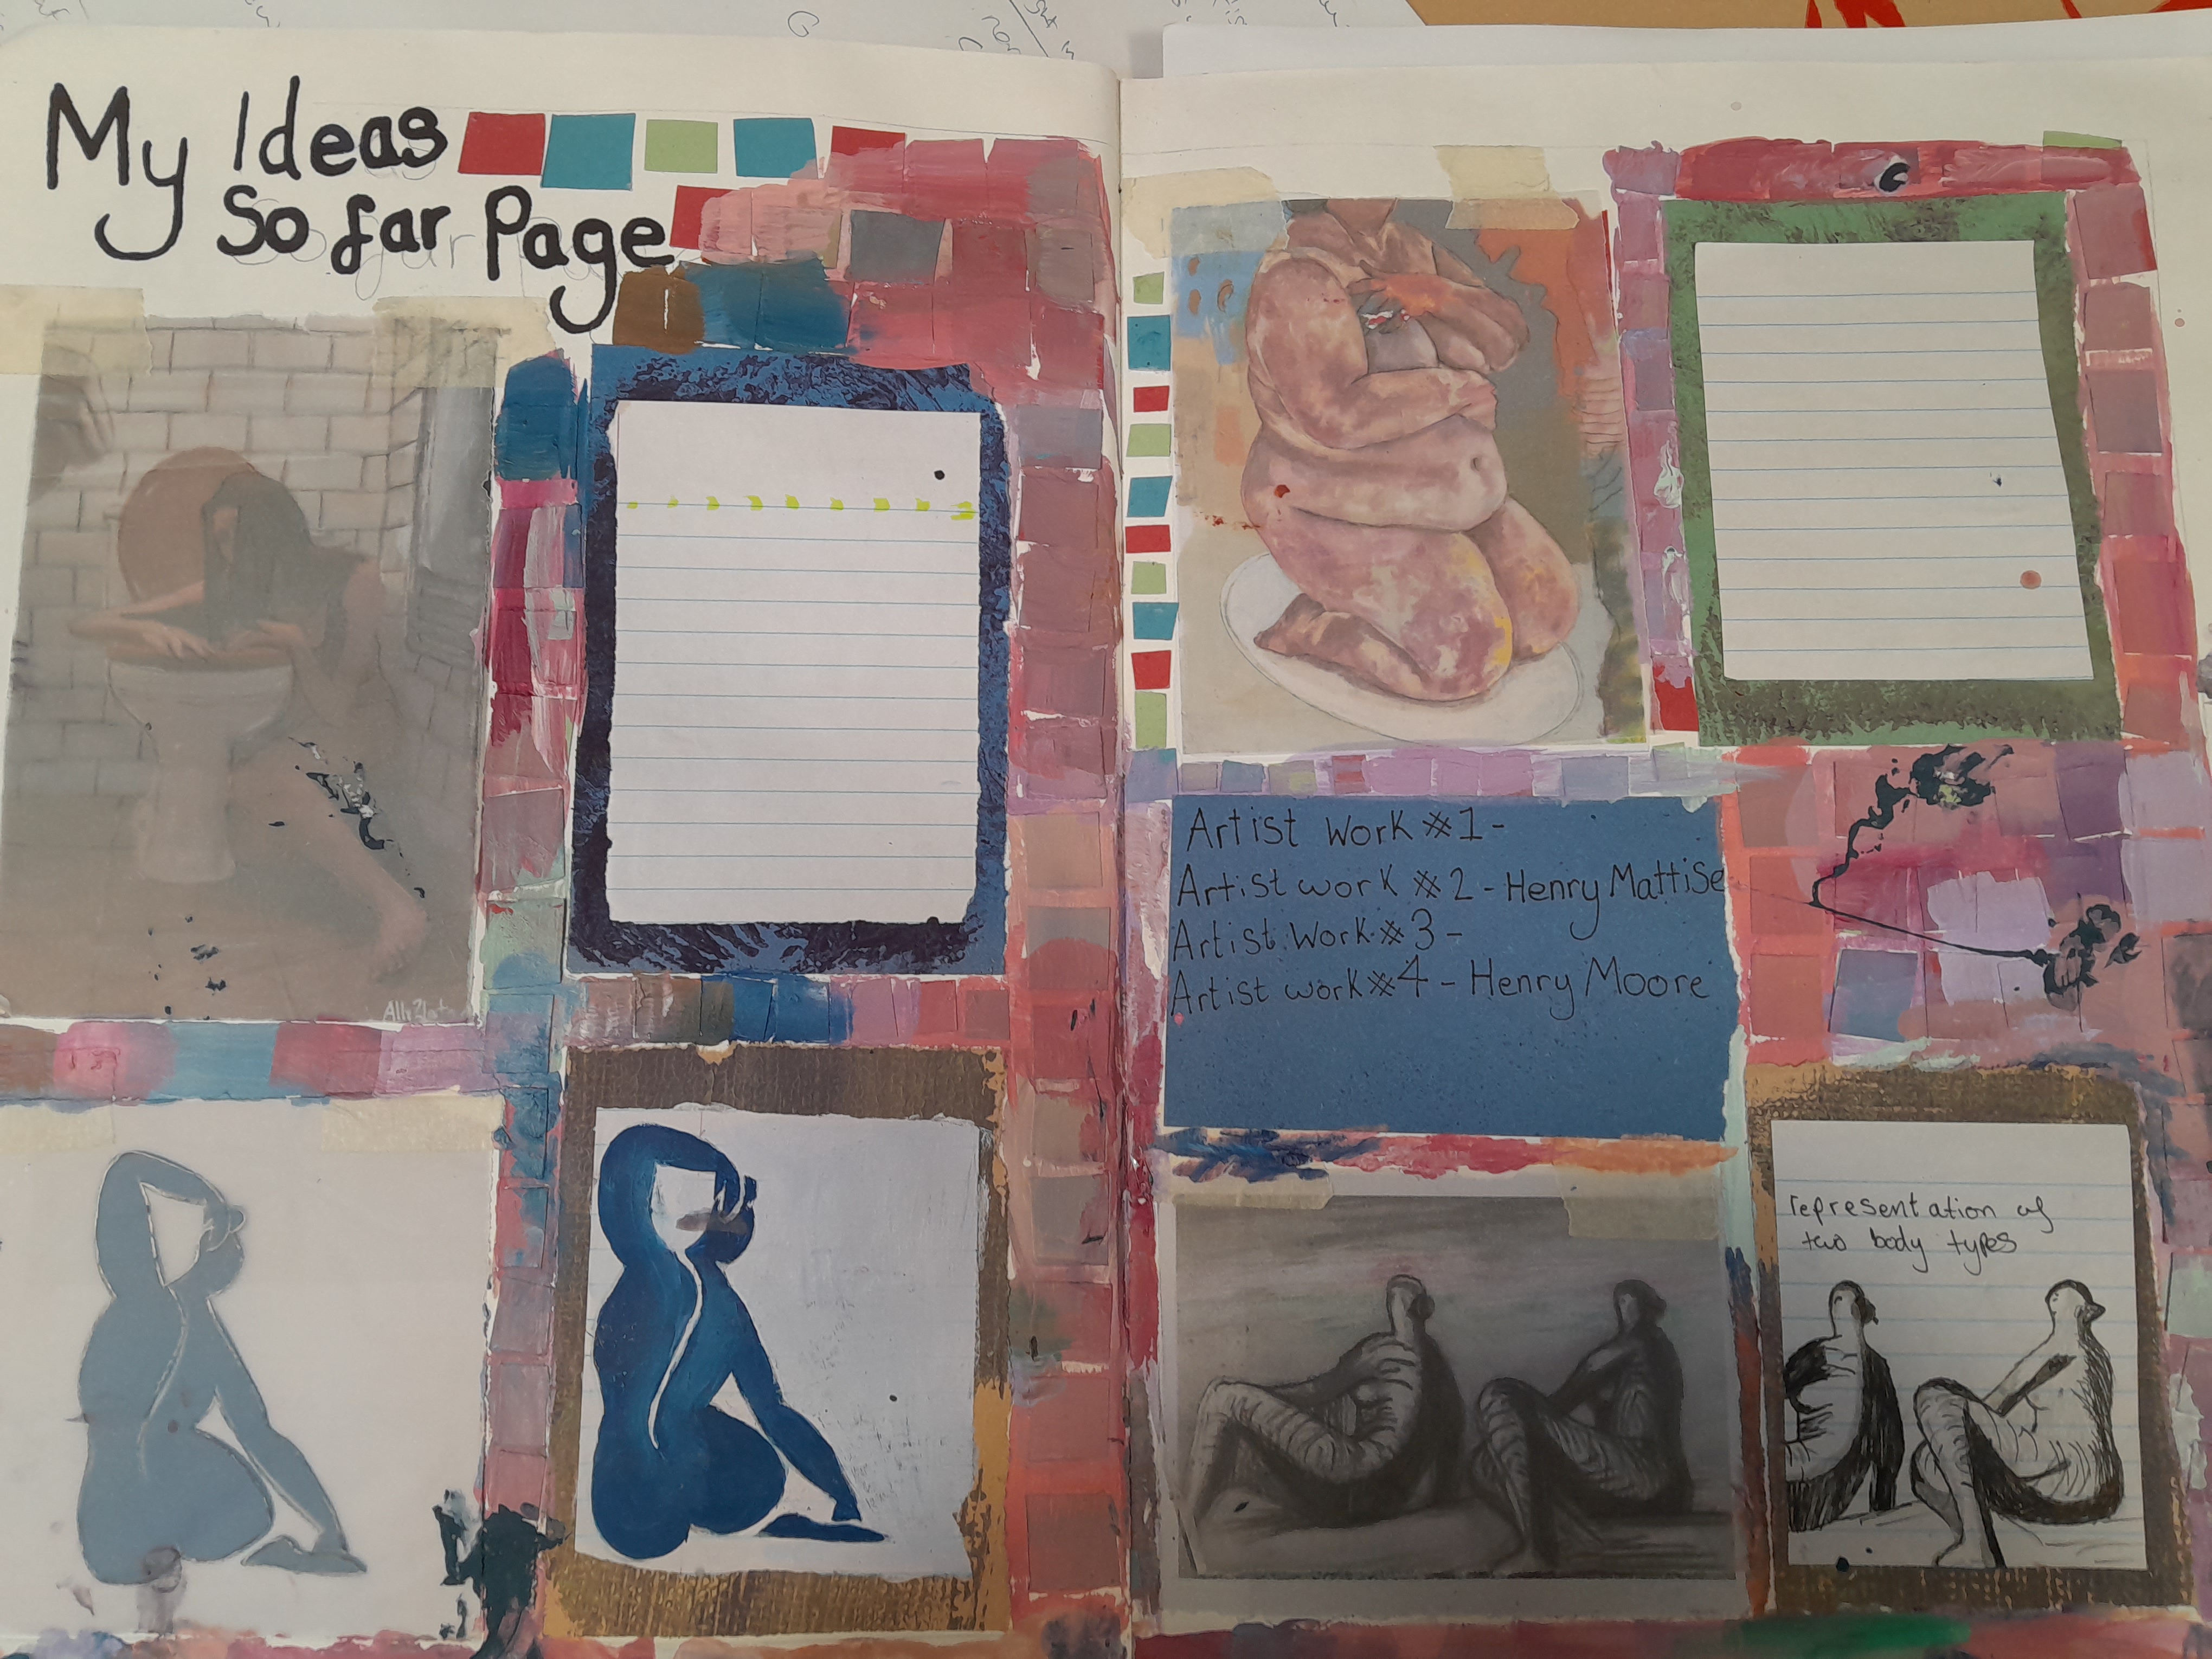 My Ideas
So far Page
Artist work #1-
Artist work #2-Henry Mattise
Artist Work #3-
Artist work #4-Henry Moore
representation of
two body types